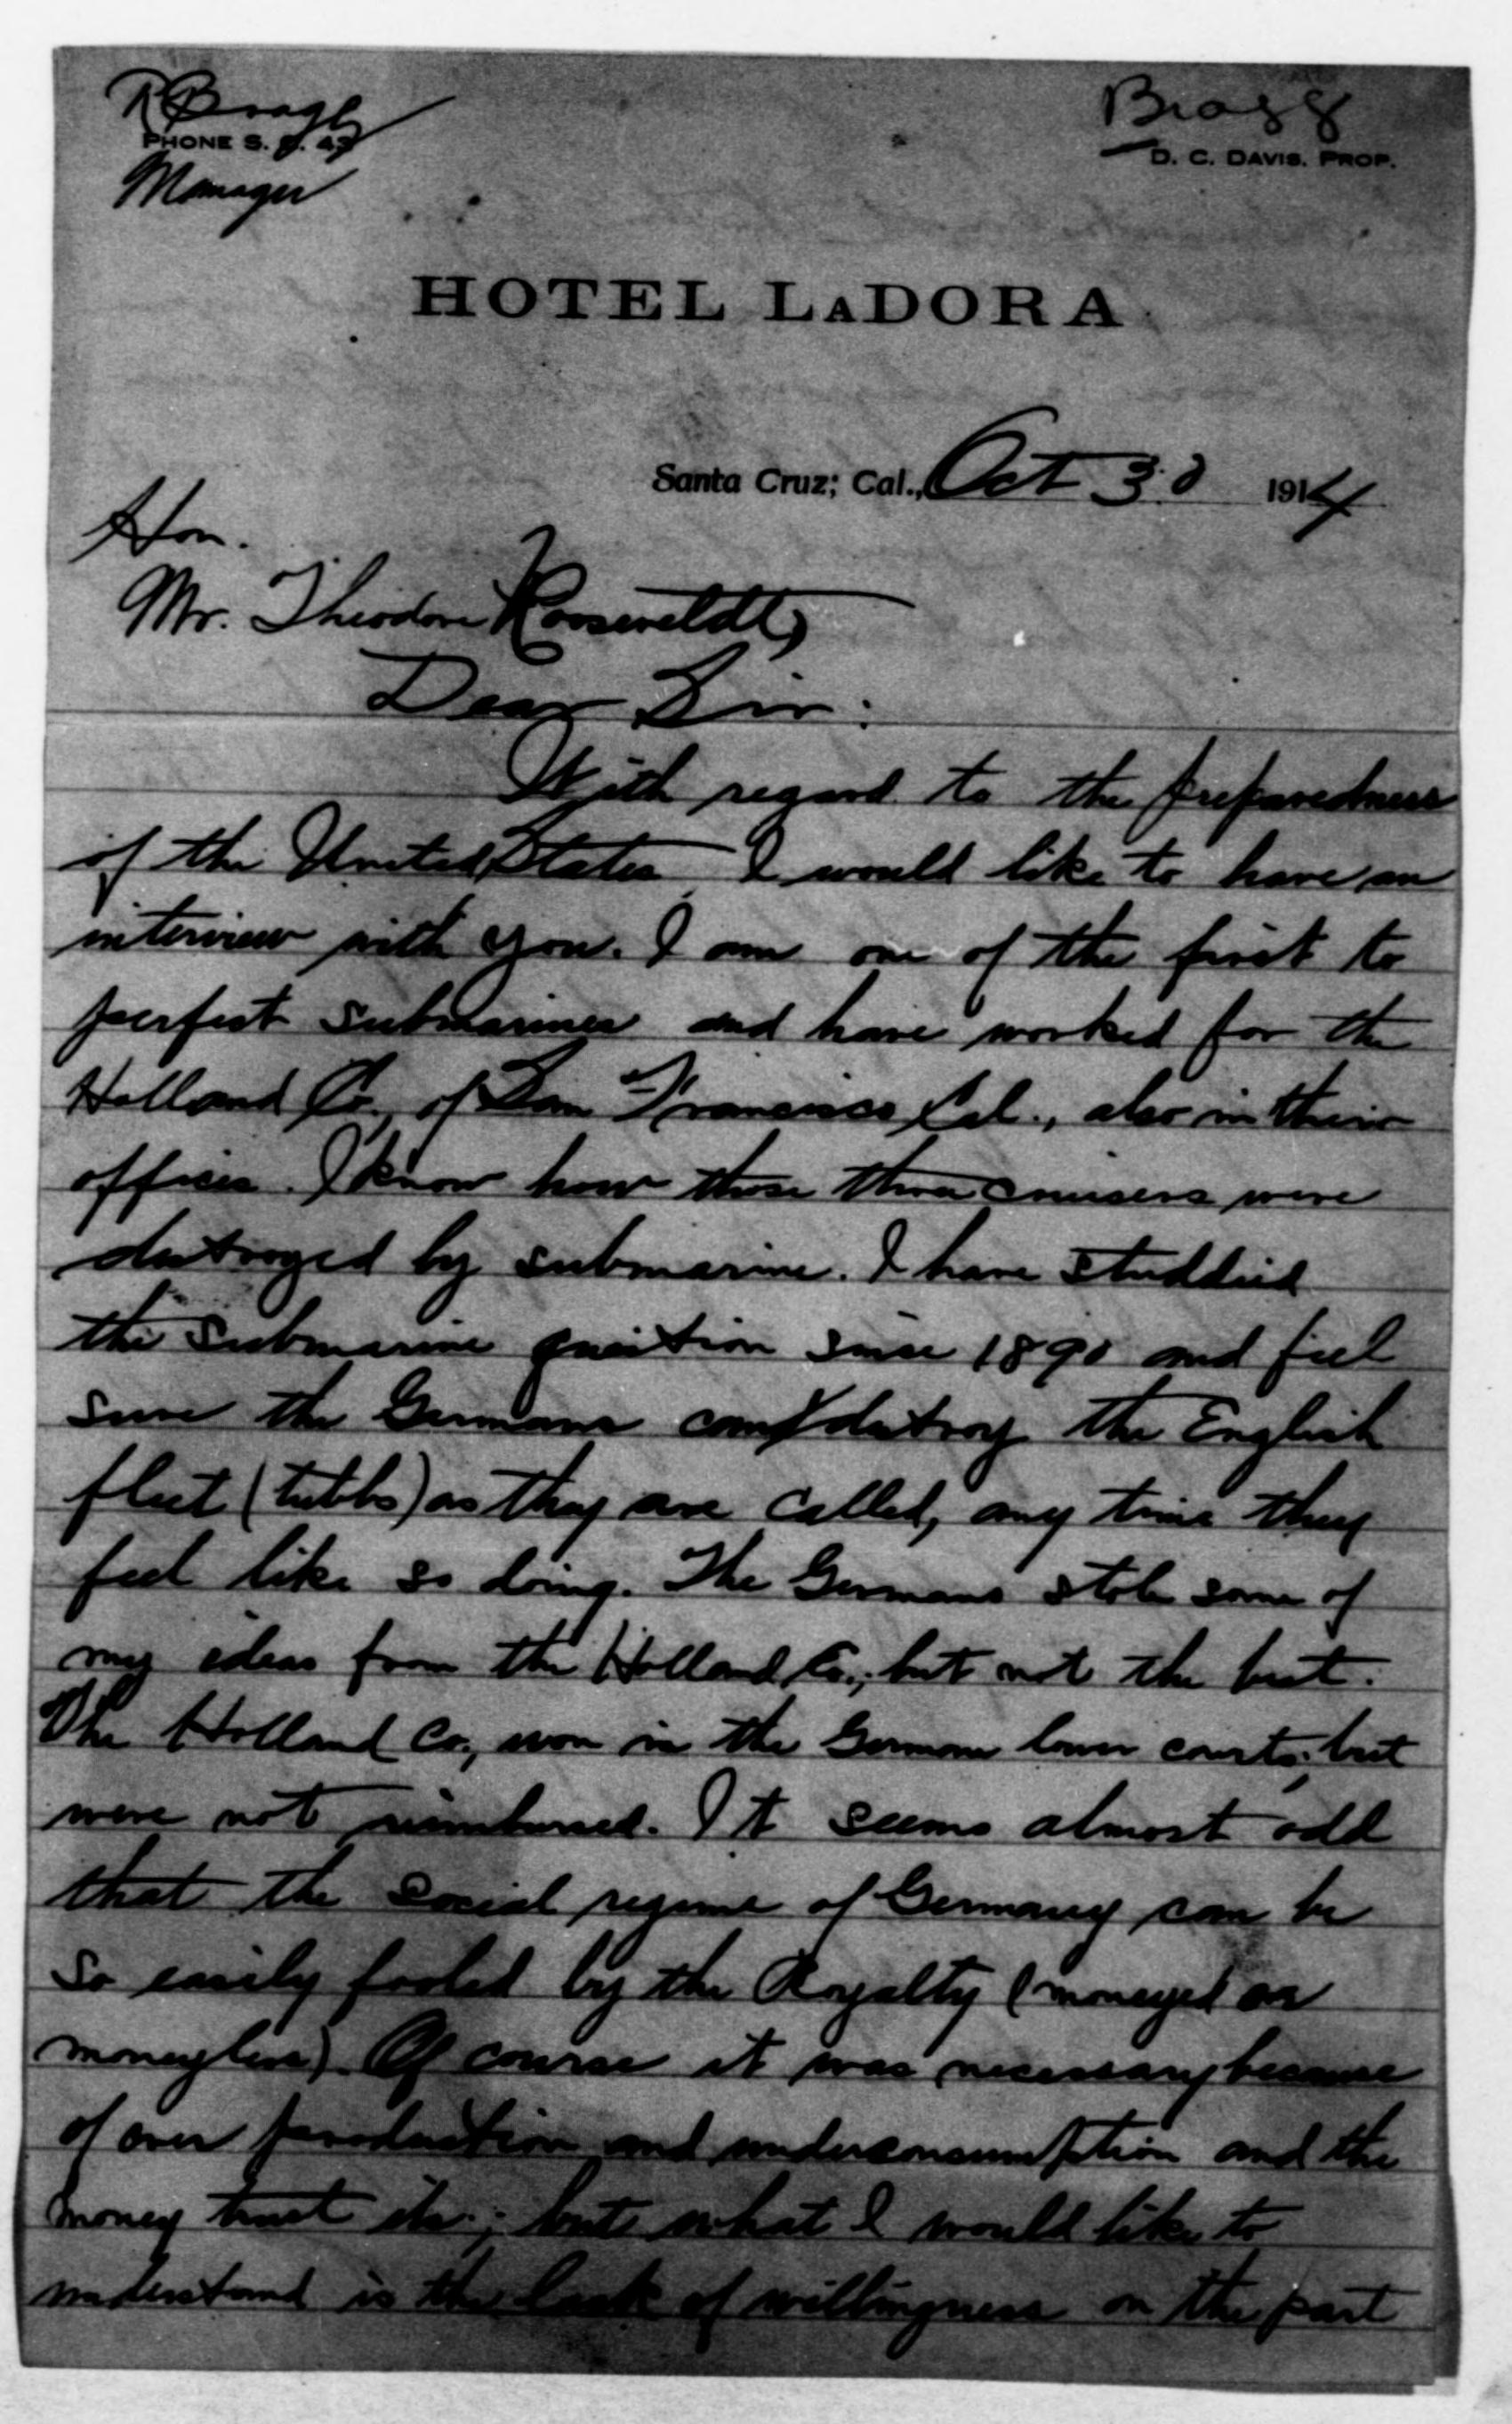 R Bragg
Bragg
PHONE S. C. 43
D. C. DAVIS. PROP.
Manager
HOTEL LADORA
Santa Cruz; Cal., Oct 30 1914
Hon.
Mr. Theodore Rooseveldt,
Dear Sir:
With regard to the preparedness
of the United States I would like to have an
interview with you. I am one of the first to
perfect submarines and have worked for the
Holland Co., of San Francisco Cal., also in their
offices. I know how those three cruisers were
destroyed by submarine. I have studdied
the submarine question since 1890 and feel
sure the Germans can destroy the English
fleet (tubbs) as they are called, any time they
feel like so doing. The Germans stole some of
my ideas from the Holland Co.; but not the best.
The Holland Co., won in the German lower courts; but
were not reimbursed. It seems almost odd
that the social regime of Germany can be
so easily fooled by the Royalty (moneyed or
moneyless). Of course it was necessary because
of over production and underconsumption and the
money trust etc.; but what I would like to
understand is the lack of willingness on the part